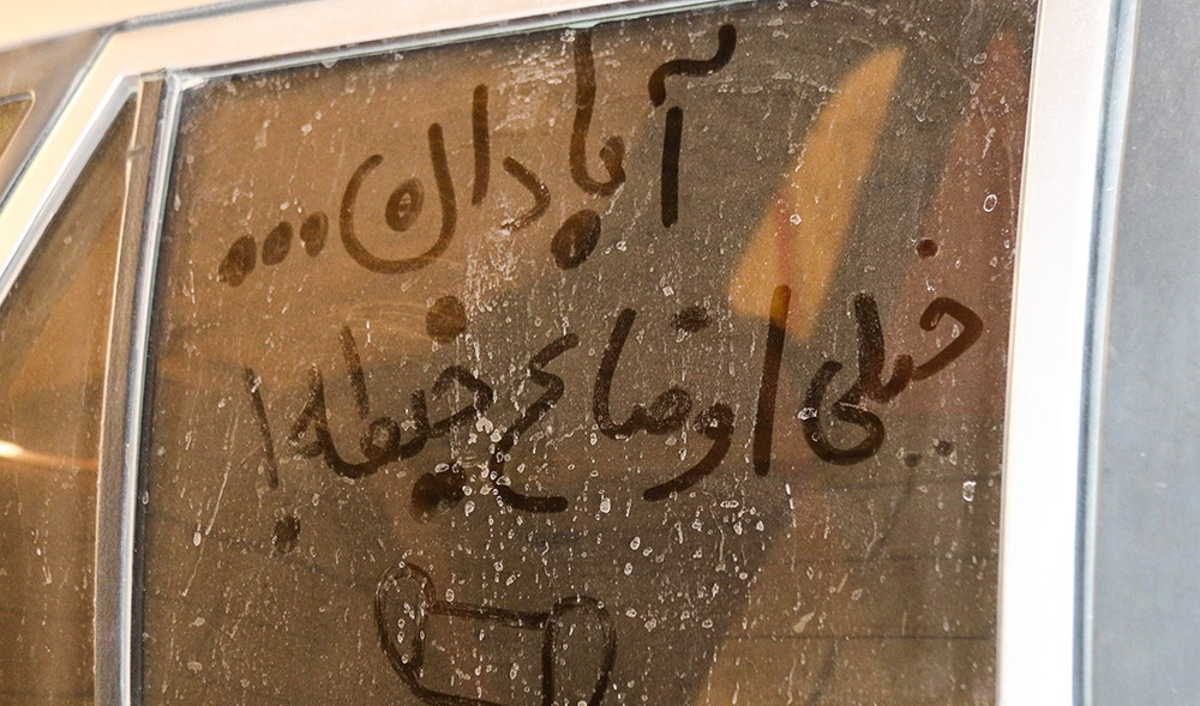 آبادان...
خیلی اوضاع خیطه!